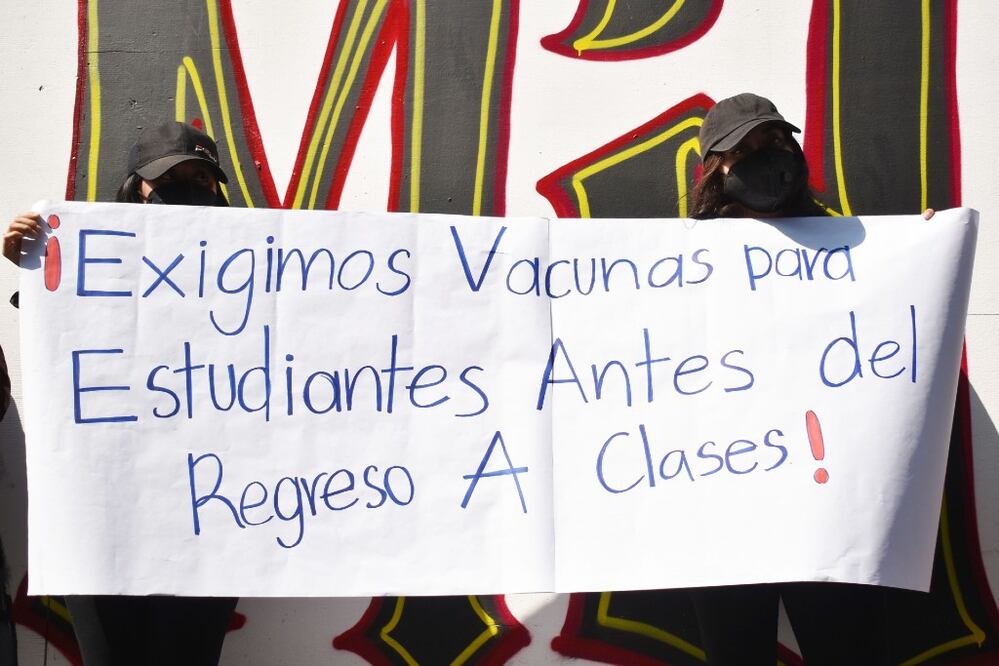 ¡Exigimos Vacunas para
Estudiantes Antes del
Regreso A Clases!